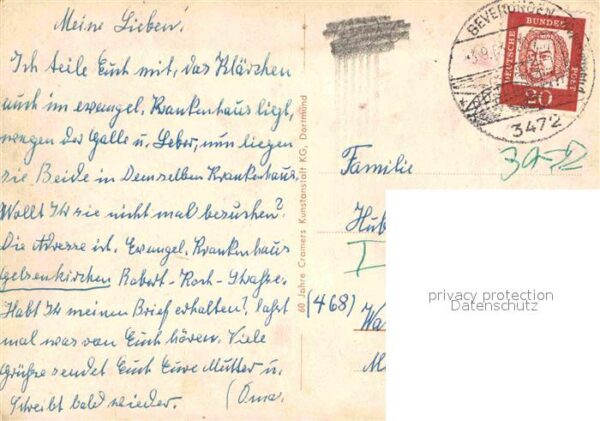 Meine Lieben!
Ich teile Euch mit, das Klärchen
auch im evangel. Krankenhaus liegt,
wegen der Galle u. Leber, nun liegen
sie Beide in Demselben Krankenhaus.
Wollt Ihr sie nicht mal besuchen?
Die Adresse ist. Evangel. Krankenhaus
Gelsenkirchen Robert-Koch-Straße.
Habt Ihr meinen Brief erhalten? Laßt
mal was von Euch hören. Viele
Grüße sendet Euch Eure Mutter u.
Schreibt bald wieder. (Oma.
60 Jahre Cramers Kunstanstalt KG, Dortmund
BEVERUNGEN
3472
DEUTSCHE BUNDESPOST
20
39-72
Familie
Hub
I
(468) Wa
privacy protection
Datenschutz